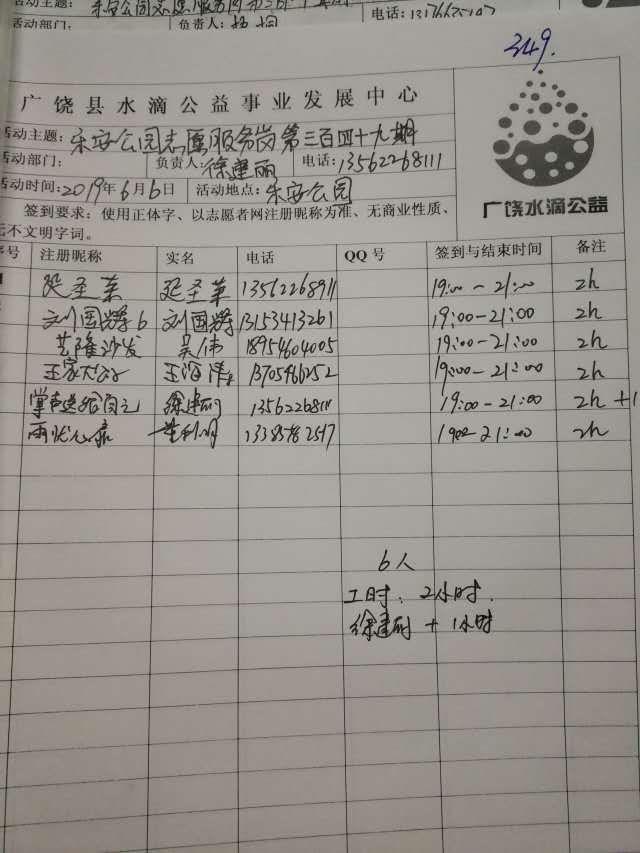 活动主题:
活动部门: 负责人: 电话:
349.
广饶县水滴公益事业发展中心
活动主题: 乐安公园志愿服务岗第三百四十九期
活动部门: 负责人: 徐建丽 电话: 13562268111
活动时间: 2019年6月6日 活动地点: 乐安公园
签到要求: 使用正体字、以志愿者网注册昵称为准、无商业性质、
无不文明字词。
广饶水滴公益
序号 注册昵称 实名 电话 QQ号 签到与结束时间 备注
延圣革 延圣革 13562268911 19:00-21:00 2h
刘国辉6 刘国辉 13153413261 19:00-21:00 2h
艺隆沙发 吴伟 18954604005 19:00-21:00 2h
王家大公子 13705466252 19:00-21:00 2h
徐建丽 13562268111 19:00-21:00 2h +1
1900-21:00 2h
6人
工时: 2小时.
徐建丽 + 1小时